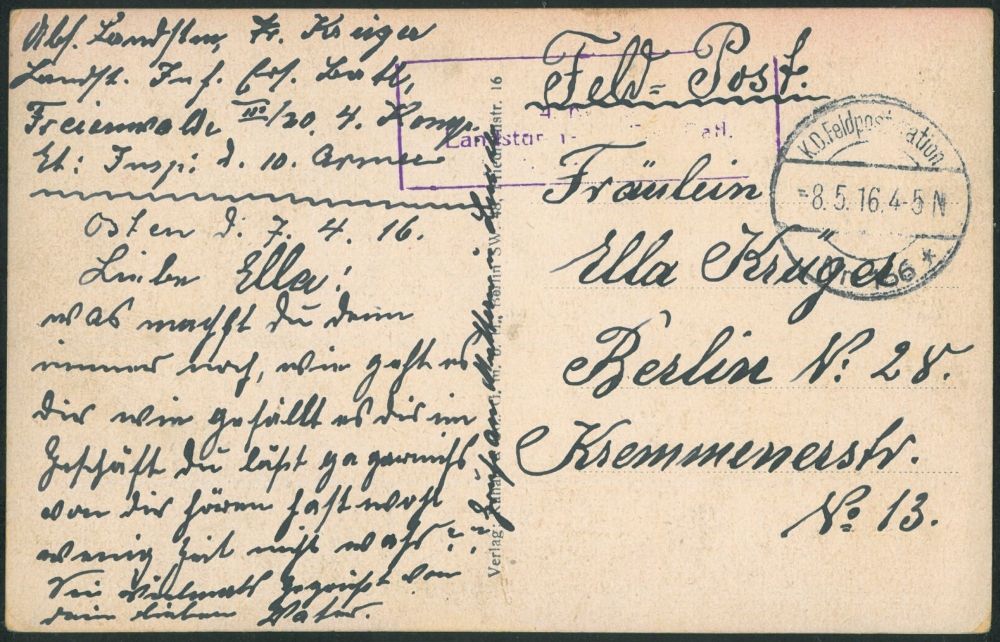 Abs. Landstm. Fr. Krüger
Landst. Inf. Ers. Batl.
Freienwalde III/20. 4. Komp.
Et: Insp: d. 10. Armee
Osten d. 7. 4. 16.
Liebe Ella!
was machst du denn
immer noch, wie geht es
dir wie gefällt es dir im
Geschäft du läßt ja garnichts
von dir hören hast wohl
wenig Zeit nicht wahr??
Sei vielmals gegrüßt von
dein lieben Vater.
Gruß an Mutter
Verlag:
Berlin SW. 48,
str. 16
Feld=Post.
Landstur
atl.
K.D.Feldpoststation
-8.5.16.4-5N
Nr. 166 *
Fräulein
Ella Krüger
Berlin N. 28.
Kremmenerstr.
No 13.